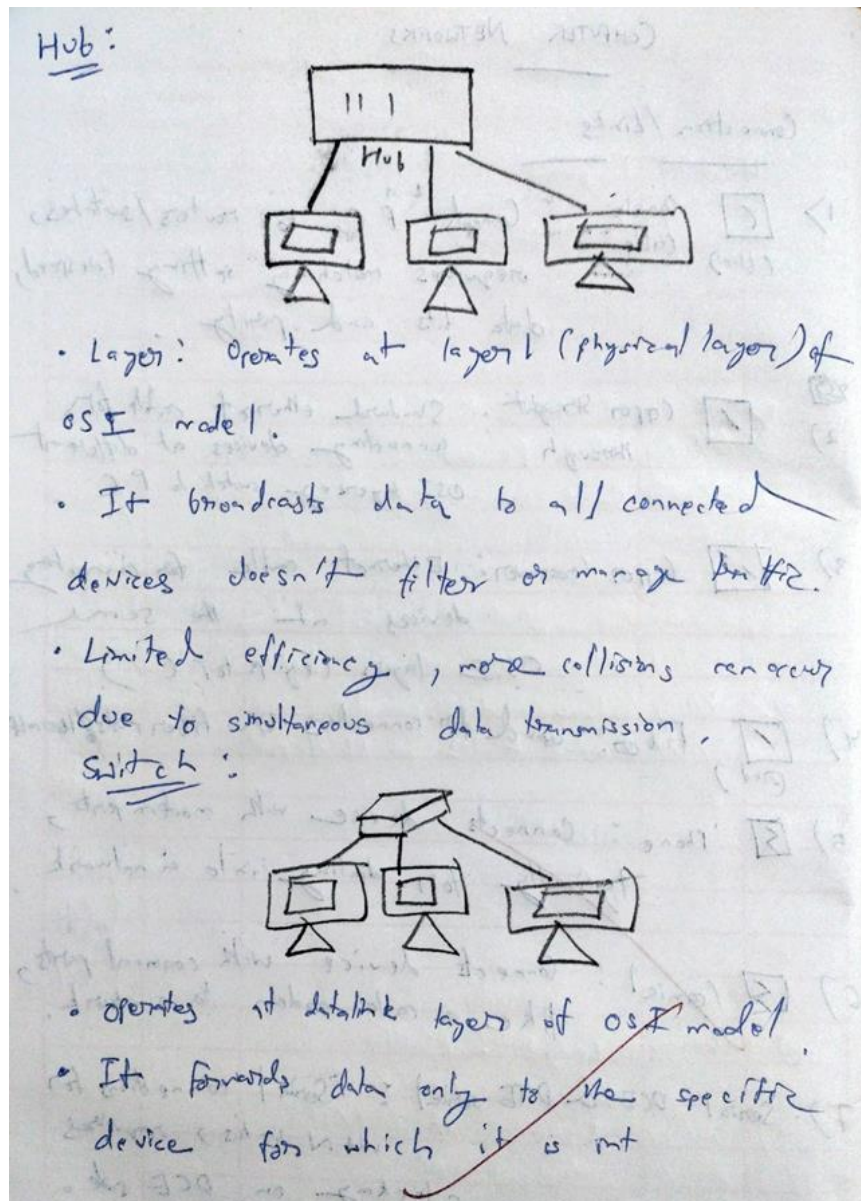 Hub:
Hub
• Layer: Operates at layer 1 (physical layer) of
OSI model.
• It broadcasts data to all connected
devices doesn't filter or manage traffic.
• Limited efficiency, more collisions can occur
due to simultaneous data transmission.
Switch:
• Operates at datalink layer of OSI model.
• It forwards data only to the specific
device for which it is mt